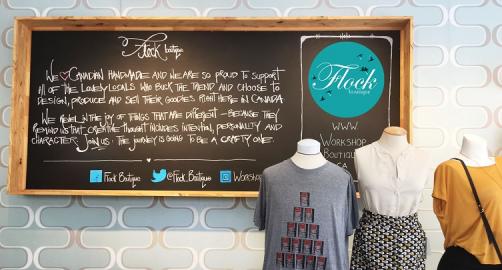 Flock boutique
WE CANADIAN HANDMADE AND WE ARE SO PROUD TO SUPPORT
All OF THE LOVELY LOCALS WHO BUCK THE TREND AND CHOOSE TO
DESIGN, PRODUCE AND SELL THEIR GOODIES RIGHT HERE IN CANADA
WE REVEL IN THE JOY OF THINGS THAT ARE DIFFERENT - BECAUSE THEY
REMIND US THAT CREATIVE THOUGHT INCLUDES INTENTION, PERSONALITY AND
CHARACTER. JOIN US. THE JOURNEY IS GOING TO BE A CRAFTY ONE.
Flock Boutique
@Flock_Boutique
WORKSHOP
Flock
boutique
WWW.
WORKSHOP
BOUTIQUE
.CA